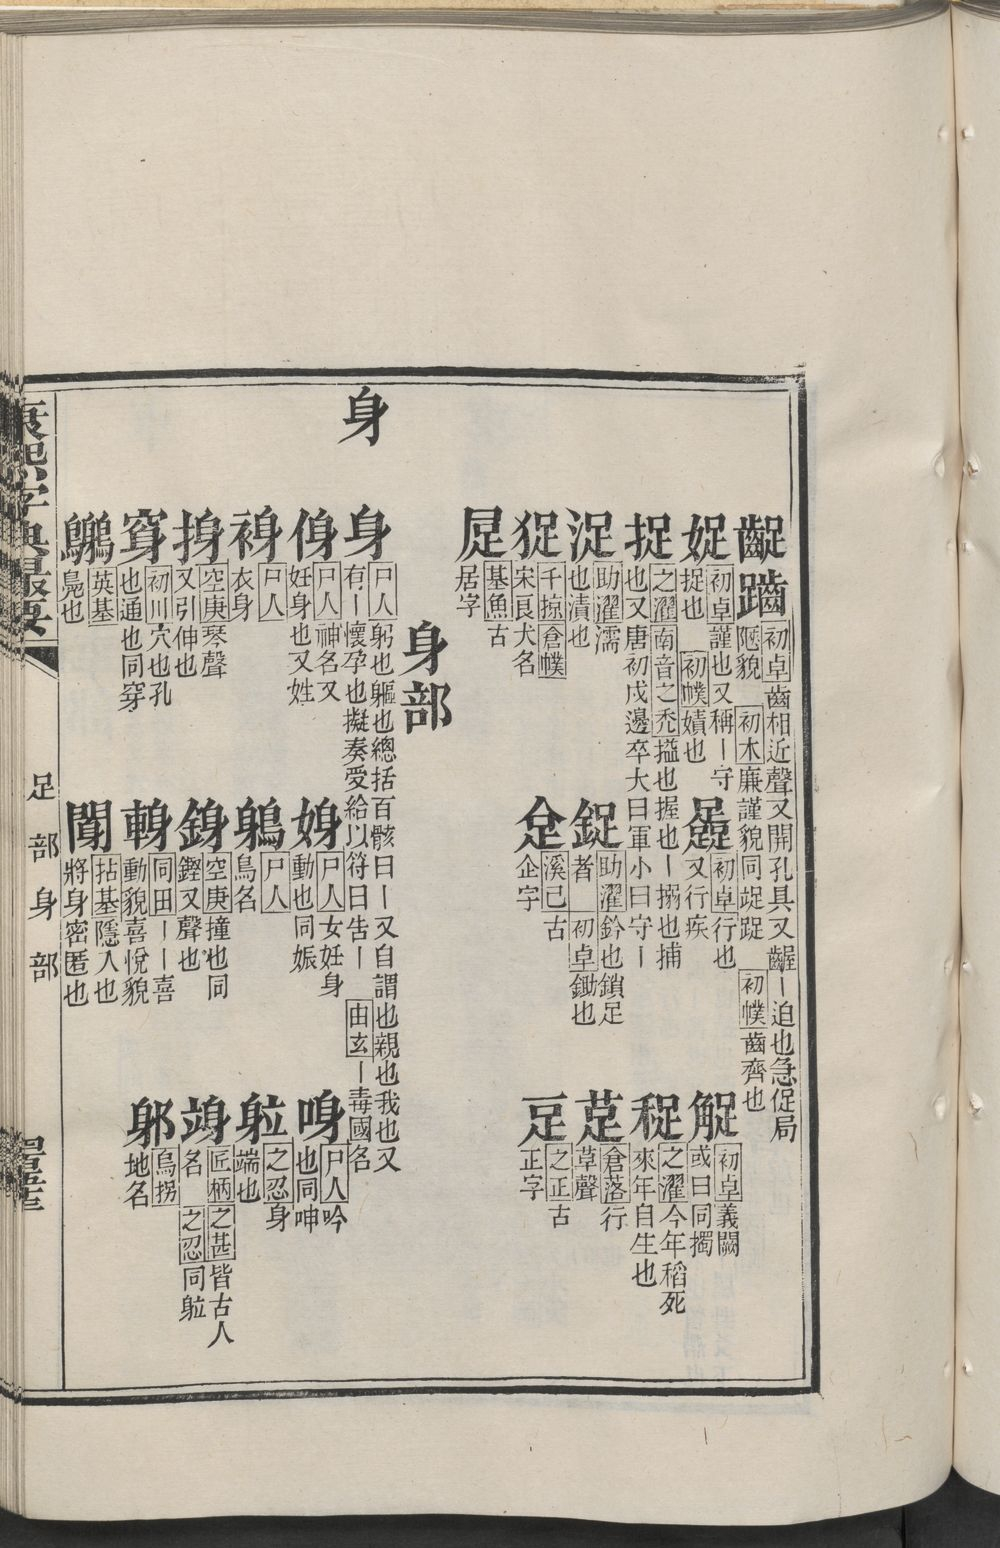 齪䠡 初卓齒相近聲又開孔具又齷丨迫也急促局
陋貌 初木廉謹貌同娖踀 初幞齒齊也
娖 初卓謹也又稱丨守
捉也 初幞嫧也
初卓行也
又行疾
䚄 初卓義闕
或曰同擉
捉 之濯南音之禿搤也握也丨搦也捕
也又唐初戍邊卒大曰軍小曰守丨
之濯今年稻死
來年自生也
浞 助濯濡
也漬也
鋜 助濯鈐也鎖足
者 初卓鋤也
倉落行
草聲
千掠倉幞
宋良犬名
溪己古
企字
之正古
正字
𡱒 基魚古
居字
身部
身
身 尸人躬也軀也總括百骸曰丨又自謂也親也我也又
有丨懷孕也擬奏受給以符曰告丨 由玄丨毒國名
㑗 尸人神名又
妊身也又姓
㛛 尸人女妊身
動也同娠
尸人吟
也同呻
尸人
衣身
尸人
鳥名
之忍身
端也
空庚琴聲
又引伸也
空庚撞也同
鏗又聲也
匠柄之甚皆古人
名 之忍同䠴
窜 初川穴也孔
也通也同穿
同田丨丨喜
動貌喜悅貌
躮 烏拐
地名
英基
鳧也
拈基隱人也
將身密匿也
康熙字典撮要
足部身部